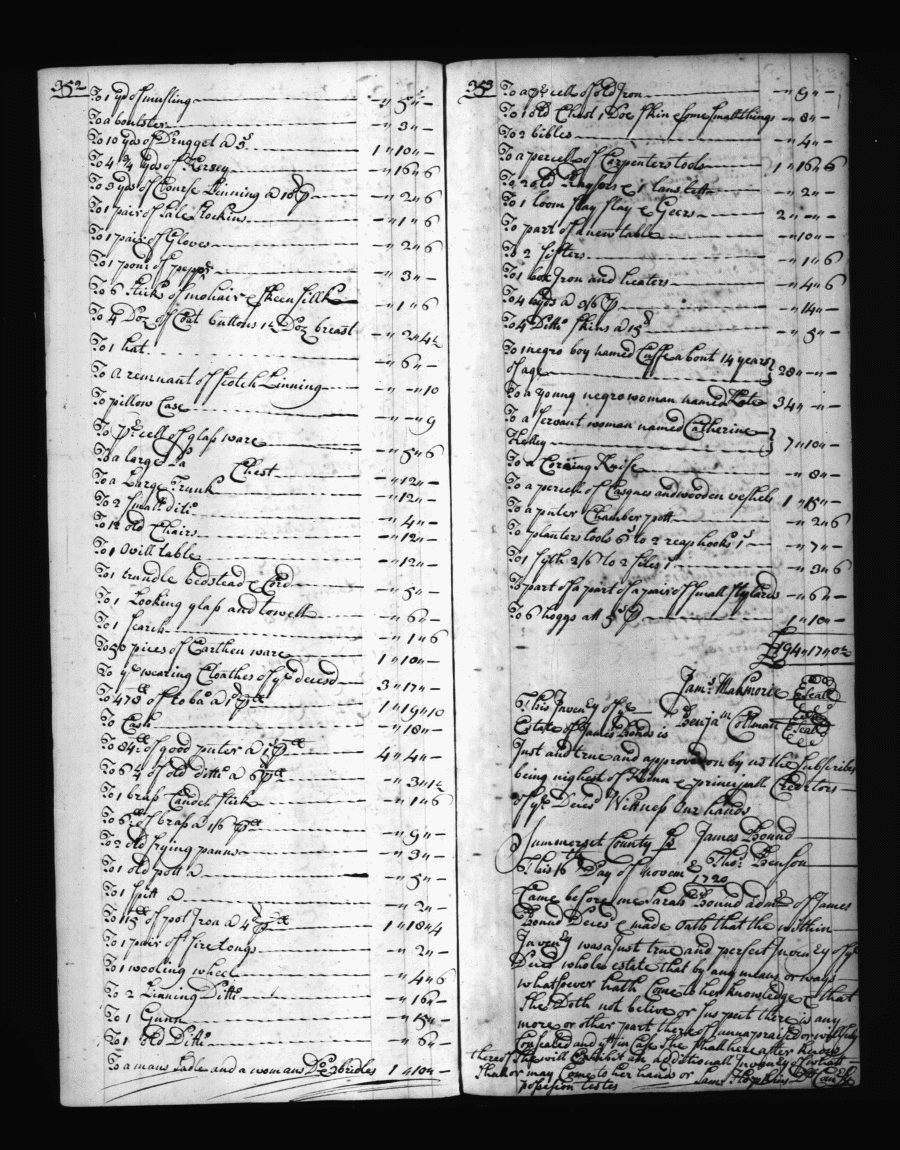 352
To 1 yd of musling — " 5 " —
To a boulster — " 3 " —
To 10 yds of Drugget a 3s 1 " 10 " —
To 4 3/4 yds of Kersey — " 16 " 6
To 3 yds of Course Linning a 10d p — " 2 " 6
To 1 pair of Sale Stockins — " 1 " 6
To 1 pair of Gloves — " 2 " 6
To 1 pont of pepper — " 3 " —
To 6 Sticks of mohair & Skeen Silk — " 1 " 6
To 4 Doz of Coat buttons 1 1/2 Doz breast — " 2 " 4 1/2
To 1 hat — " 6 " —
To a remnant of Scotch Linning — " — " 10
To pillow Case — " — " 9
To prcell of glass ware — " 5 " 6
To a large Do Chest — " 12 " —
To a Large Trunk — " 12 " —
To 2 Small ditto — " 4 " —
To 12 old Chairs — " 12 " —
To 1 Ovill table — " 12 " —
To 1 trundle bedstead & Cord — " 5 " —
To 1 Looking glass and towell — " 6 " —
To 1 Search — " 1 " 6
To 56 pices of Earthen ware 1 " 10 " —
To ye wearing Cloathes of ye decesd 3 " 17 " —
To 478 of toba a 1d p 1 " 19 " 10
To Cash — " 18 " —
To 84 of good puter a 1s p 4 " 4 " —
To 6 1/4 of old ditto a 6 p — " 3 " 1 1/2
To 1 brass Candel Stick — " 1 " 6
To 6 of brass a 1/6 p — " 9 " —
To 2 old frying panns — " 3 " —
To 1 old pott a — " 5 " —
To 1 spitt a — " 2 " —
To 115 of pot Iron a 4d p 1 " 18 " 4
To 1 pair off fire tongs — " 2 " —
To 1 wooling wheel — " 4 " 6
To 2 Linning Ditto — " 16 " —
To 1 Gunn — " 15 " —
To 1 old Ditto — " 6 " —
To a mans Sadle and a womans Do 3 bridles 1 " 10 " —
353
To a prcell of old Iron — " 9 " —
To 1 old Chest 1 Doe Skin & some small things — " 8 " —
To 2 bibles — " 4 " —
To a percell of Carpenters tools 1 " 16 " 6
To 2 old Raysors & 1 — " 2 " —
To 1 loom Slay & Geers 2 " — " —
To part of a new table — " 10 " —
To 2 Sifters — " 1 " 6
To 1 box Iron and heaters — " 4 " 6
To 4 a 3/6 p — " 14 " —
To 4 Ditto Skins a 15d — " 5 " —
To 1 negro boy named Cuffe about 14 years
of age 28 " — " —
To a young negro woman named Kate 34 " — " —
To a Servant woman named Catherine
Holley 7 " 10 " —
To a Knife — " 8 " —
To a percell of Casques and wooden vessels 1 " 15 " —
To a puter Chamber pott — " 2 " 6
To planters tools 6s to 2 reap hooks 1s — " 7 " —
To 1 Syth 2/6 to 2 files 1s — " 3 " 6
To part of a part of a pair of Small Stylards — " 6 " —
To 6 hoggs att 5s p 1 " 10 " —
£194 " 17 " 0 1/2
This Inventy of ye James Makmorie Seall
Estate of James Bonds is Benjam Cottman Seall
Just and true and approved on by us the Subscribes
being nighest of Kinn & principall Creditors
of ye Decesd Witness Our hands
Summerset County ss James Bound
This 16th Day of Novem 1720 Thos Benson
Came before me Sarah Bound admx of James
Bound Decesd & made oath that the within
Inventy was a Just true and perfect Inventy of ye
Decesd whole estate that by any means or ways
whatsoever hath Come to her knowledge & that
She Doth not belive or Suspect there is any
more or other part thereof unnapraised or willfully
Consealed and if in Case She Shall hereafter know
thereof She will Exhibit an additionall Inventy of what
Shall or may Come to her hands or
possesion testes Saml Hopkins